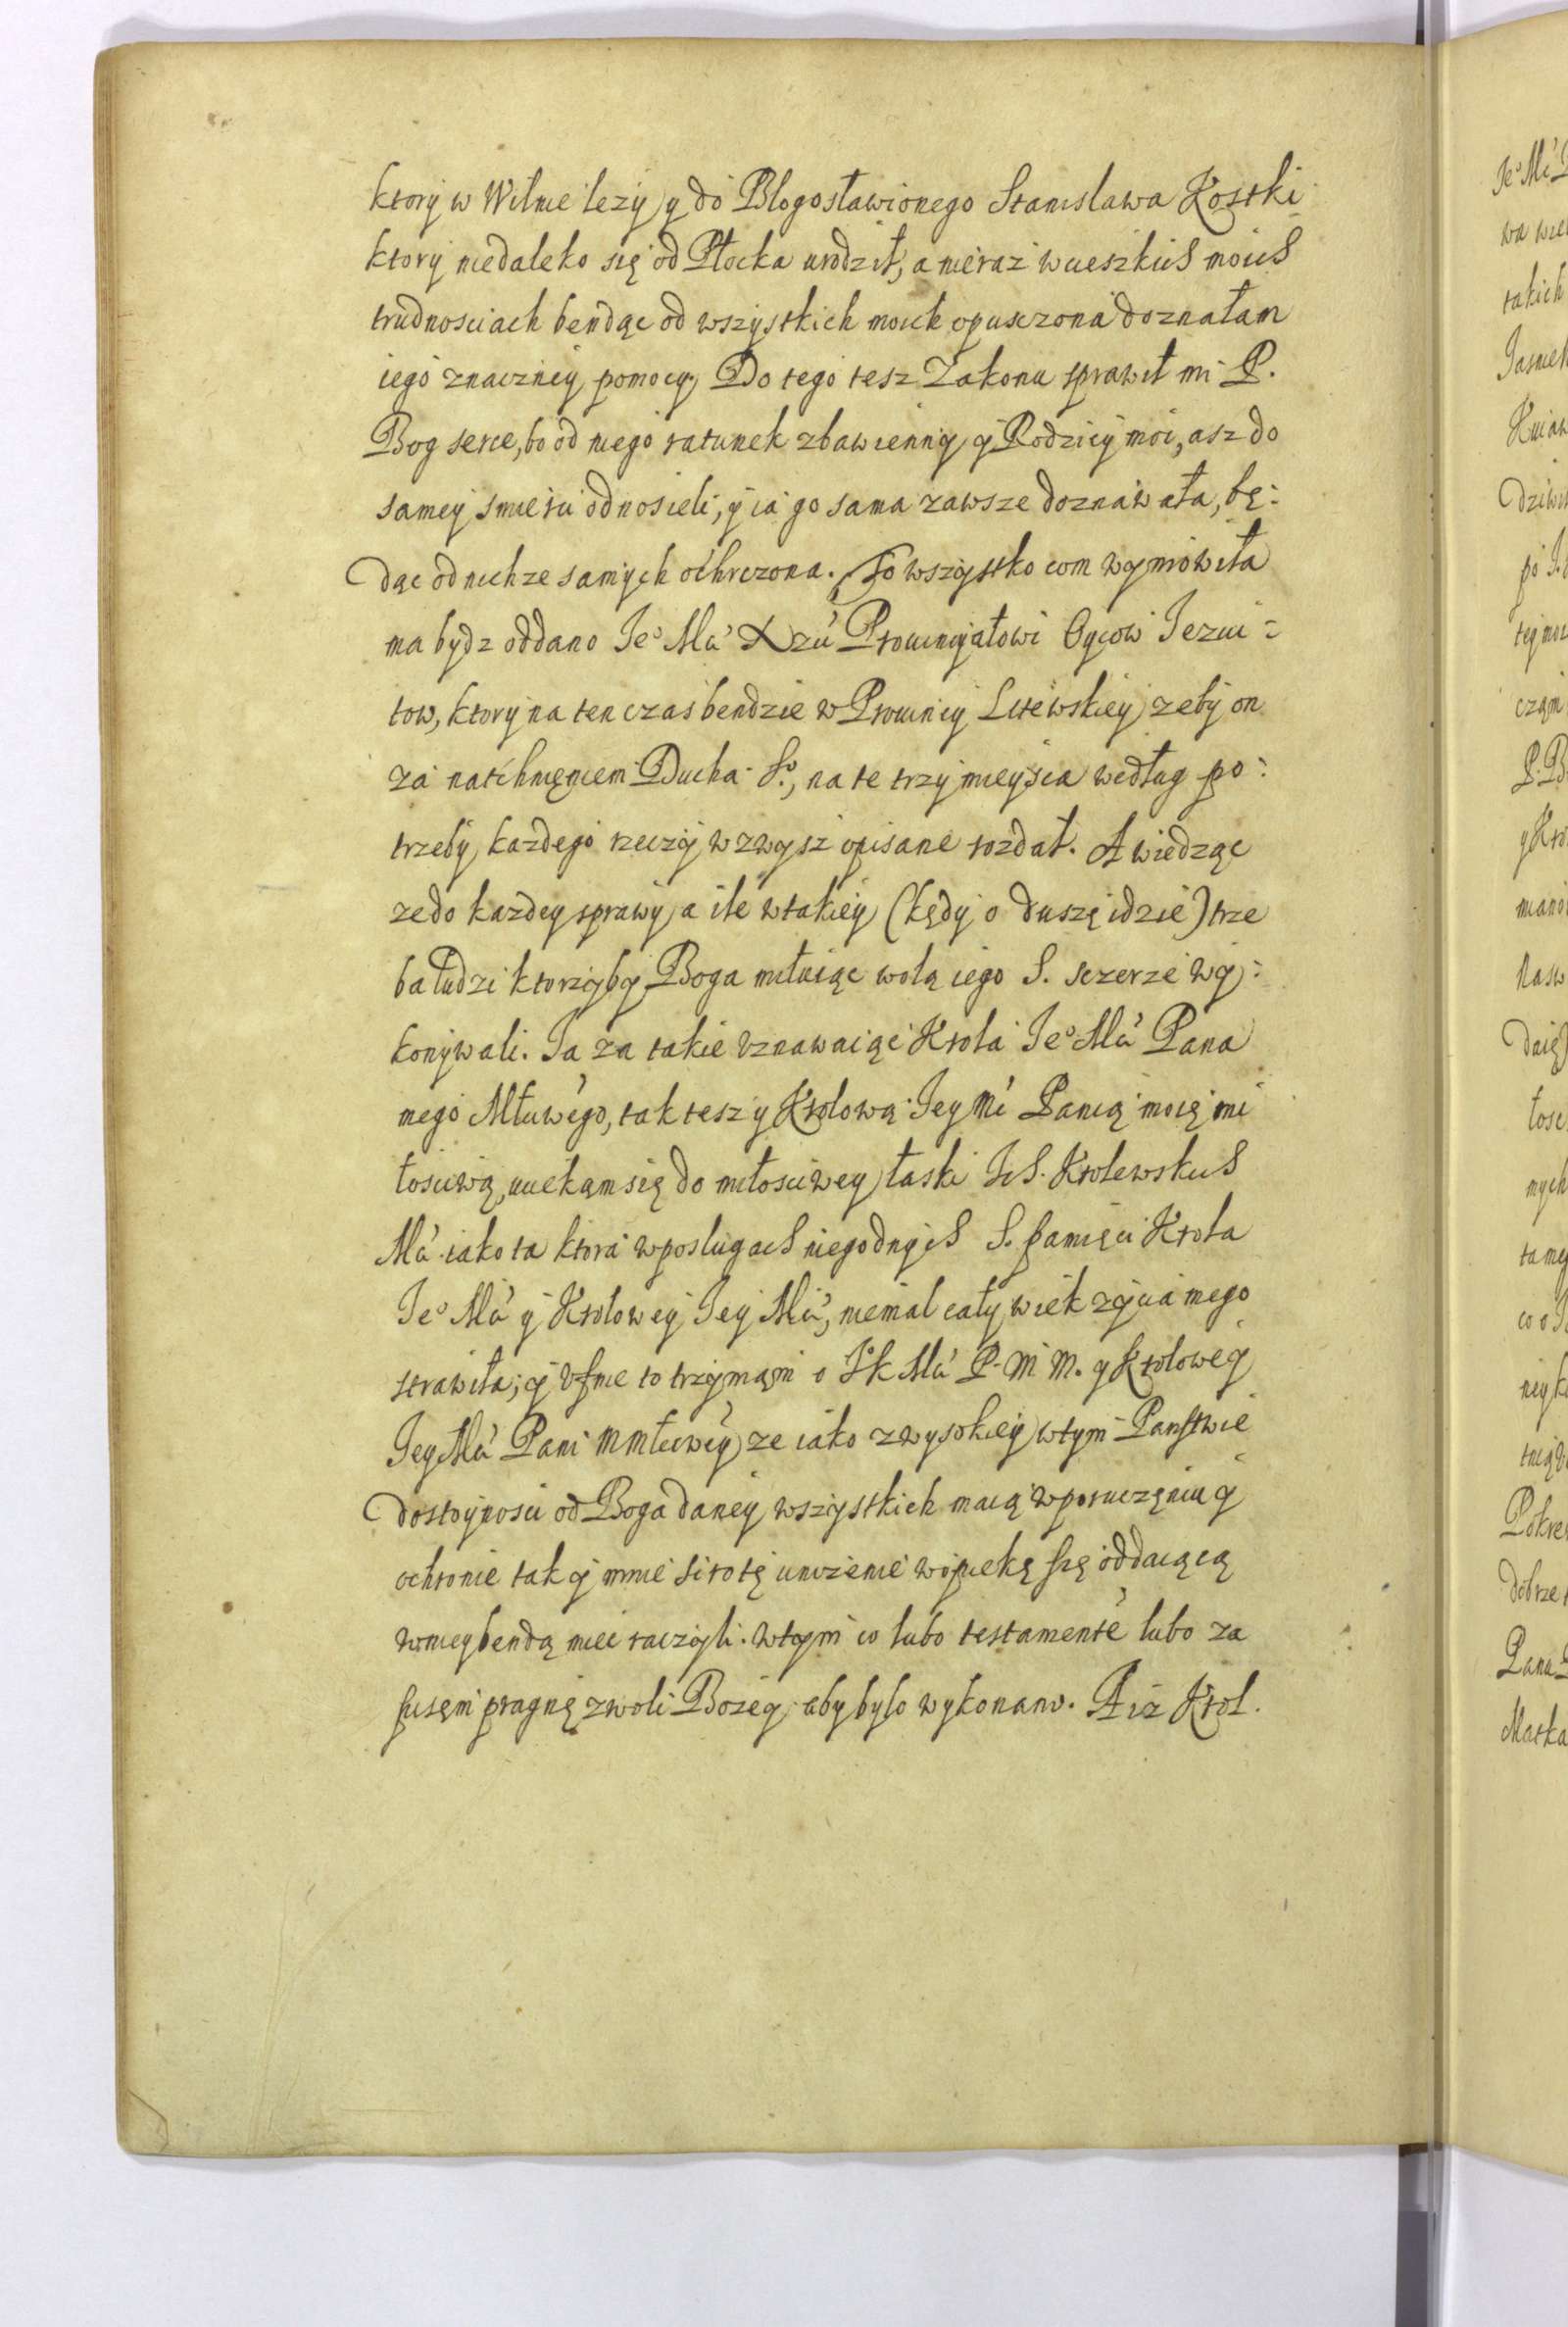 ktory w Wilnie lezy y do Blogosławionego Stanisława Kostki
ktory niedaleko się od Płocka urodził, a nieraz w cieszkich moich
trudnosciach bendąc od wszystkich moich opusczona doznałam
iego znaczniey pomocy. Do tego tesz Zakonu sprawił mi P.
Bog serce, bo od niego ratunek zbawienny y Rodzicy moi, asz do
samey smierci odnosieli, y ia go sama zawsze doznawała, bę:
dąc od nichze samych ochrczona. To wszystko com wymowiła
ma bydz oddano Je° Mći Xzu Prowincyałowi Oycow Jezui:
tow, ktory na ten czas bendzie w Prowincy Litewskiey zeby on
za natchnięniem Ducha S°, na te trzy mieysca według po:
trzeby kazdego rzeczy wzwysz opisane rozdał. A wiedząc
ze do kazdey sprawy a ile wtakiey (kędy o duszę idzie) trze
ba ludzi ktorzyby Boga miłuiąc wolą iego S. sczerze wy:
konywali. Ja za takie uznawaiąc Krola Je° Mći Pana
mego Młciwego, tak tesz y Krolową Jey Mći Panią moię mi
łosciwą, uciekam się do miłosciwey łaski Ich Krolewskich
Mći iako ta ktora w posługach niegodnych S. pamięci Krola
Je° Mći y Krolowey Jey Mći, niemal cały wiek zycia mego
strawiła; y ufnie to trzymąm o J°k Mći P. M M. y Krolowey
Jey Mći Pani M Młciwey ze iako z wysokiey w tym Panstwie
dostoynosci od Boga daney wszystkich maią w poruczęniu y
ochronie tak y mnie sirotę unizenie w opiekę się oddaiącą
w niey bendą miec raczyli. w tym co lubo testamente lubo za
pisęm pragnę z woli Bozey aby było wykonano. A iz Krol.
Je° Mći
wa wie
takich
Jasnie
Kuiaw
dziwu
po J.
tey moi
cząm
P. B
y Kro
miano
Nasw
daię
łosc
mych
tame
co o J
niey k
Pokre
dobrze
Pana
Matka